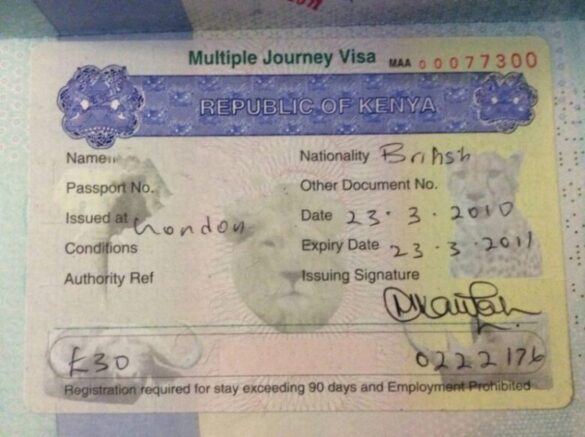 Multiple Journey Visa MAA 00077300
REPUBLIC OF KENYA
Name
Nationality British
Passport No.
Other Document No.
Issued at London
Date 23.3.2010
Conditions
Expiry Date 23.3.2011
Authority Ref
Issuing Signature
£30
0222176
Registration required for stay exceeding 90 days and Employment Prohibited